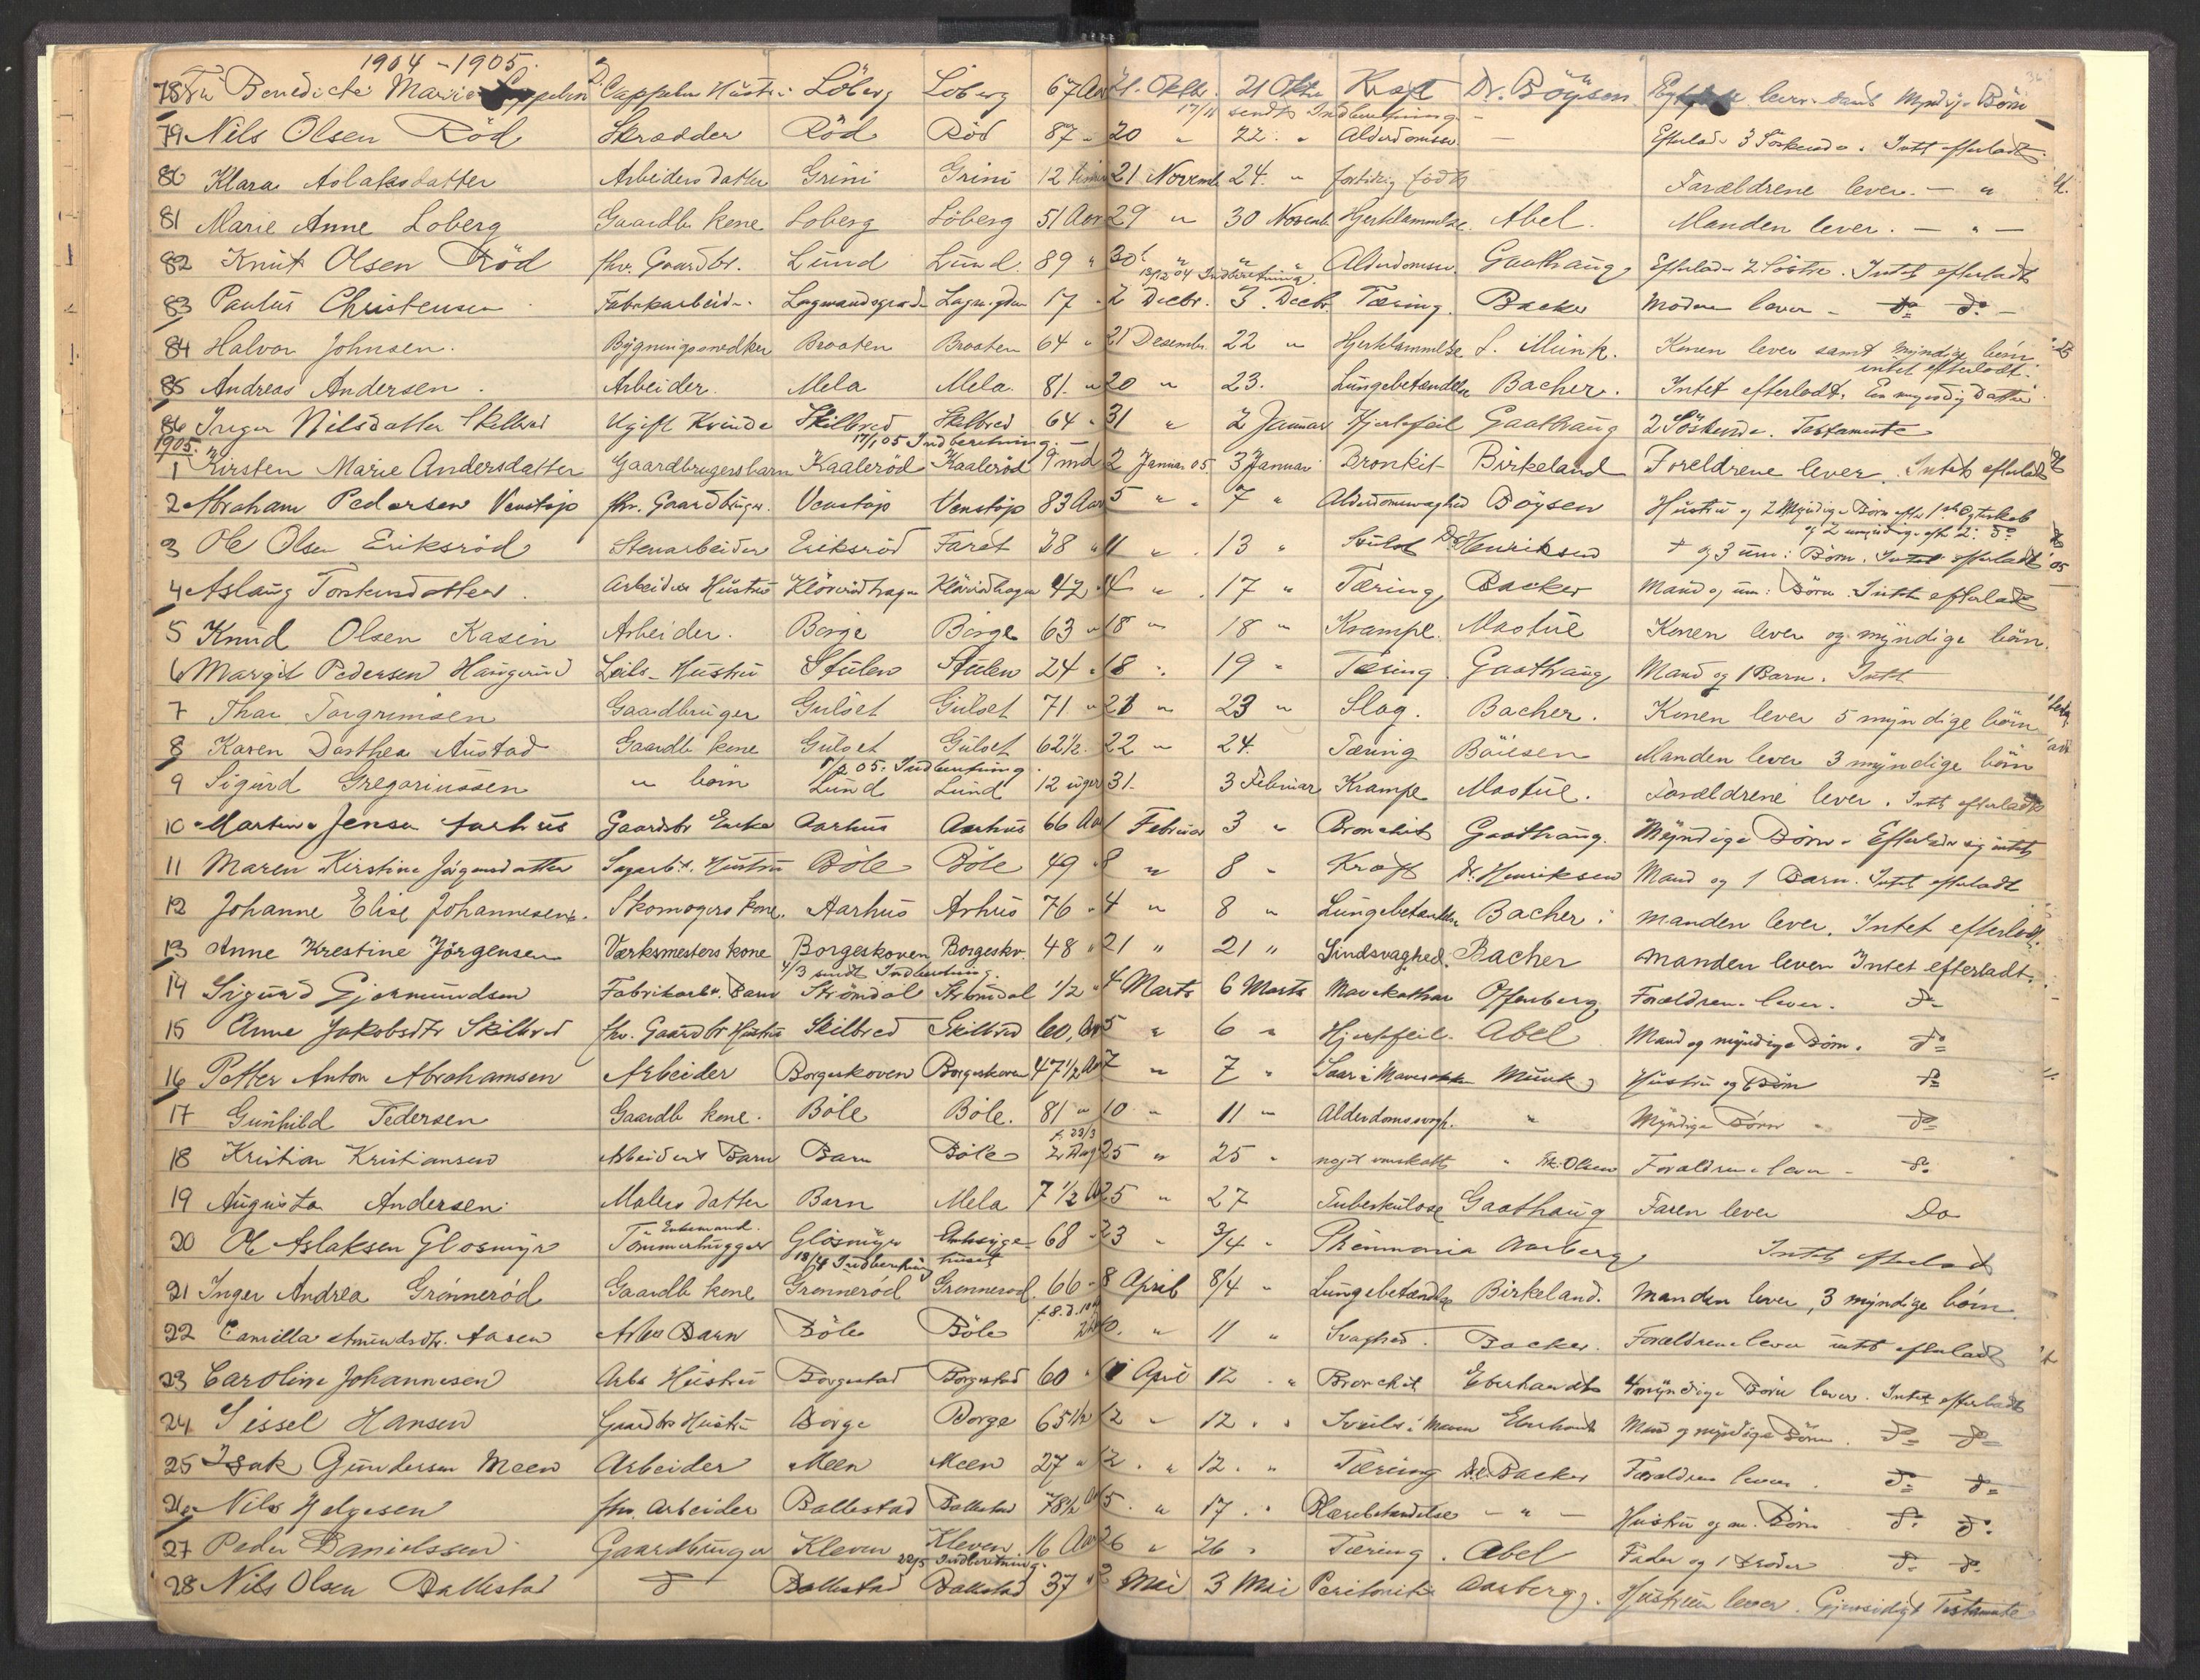 1904-1905.
78 Fru Benedicte Marie Cappelen Cappelen Hustru Löberg Löberg 67 Aar 21. Oktbr. 21 Oktbr Kræft Dr. Böysen lever samt Myndige Börn
17/11 sendt Indberetning -
79 Nils Olsen Röd Skrædder Röd Röd 87 " 20 " 22. " Alderdomssv. - Efterlader 3 Söskende. Intet efterladt
80 Klara Aslaksdatter Arbeiders datter Grini Grini 12 timer 21 Novemb 24. " fortidig födt Forældrene lever. - "
81 Marie Anne Loberg Gaardb. kone Loberg Löberg 51 Aar 29 " 30 Novemb Hjertelammelse. Abel. Manden lever. - " -
82 Knut Olsen Röd fhv. Gaardbr. Lund Lund. 89 " 30 " " " Alderdomssv. Gaathaug Efterlader 2 Söstre. Intet efterladt
13/12 04 Indberetning.
83 Paulus Christensen Fabrikarbeider. Lagmandsgrad 17 " 2 Decbr. 3. Decbr. Tæring. Backer Moderen lever - do do -
84 Halvor Johnsen. Bygningssnedker Braaten Braaten 64 " 21 Desembr. 22 " Hjertelammelse L. Munk. Konen lever samt myndige börn
intet efterladt.
85 Andreas Andersen. Arbeider. Mela Mela. 81. " 20 " 23. Lungebetændelse Bacher. Intet efterladt. En myndig datter
86 Inger Nilsdatter Skilbred Ugift Kvinde Skilbred Skilbred 64 " 31 " 2 Januar Hjertefeil Gaathaug 2 Söskende. Testamente
1905. 17/1 05 Indberetning. -
1 Kirsten Marie Andersdatter Gaardbrugersbarn Kaaleröd Kaaleröd 9 md 2 Januar 05. 3 Januar Bronkit Birkeland Foreldrene lever. Intet efterladt
2 Abraham Pedersen Venstöp fhv. Gaardbruger. Venstöp Venstöp 83 Aar 5 " 7 " Alderdomsvaghed Böysen Hustru og 2 Myndige Börn efter 1ste Ægteskab
og 2 umyndige eft. 2. do
3 Ole Olsen Eriksröd Stenarbeider Eriksröd Faret 38 " 11 " 13 " Svulst Dr Henriksen + og 3 um: Börn. Intet efterladt
4 Aslaug Torstensdatter. Arbeiders Hustru 42 14 " 17 " Tæring Backer Mand og um: Börn. Intet efterladt
5 Knud Olsen Kasin Arbeider. Borge Borge 63 " 18 " 18 " Krampe. Mastue Konen lever og myndige börn.
6 Margit Pedersen Haugerud Leils. Hustru Stulen Stulen 24 " 18 " 19 " Tæring. Gaathaug Mand og 1 Barn. Intet
7 Thor Torgrimsen Gaardbruger Gulset Gulset 71 " 21 " 23 " Slag. Bacher. Konen lever 5 myndige börn
8 Karen Dorthea Austad Gaardb kone Gulset Gulset 62 1/2. 22 " 24. Tæring Böiesen Manden lever 3 myndige börn
1/2 05. Indberetning.
9 Sigurd Gregoriussen " börn Lund Lund 12 uger 31. 3 Februar Krampe Mastue. Forældrene lever. Intet efterladt
10 Martine Jensen Aarhus Gaardbr Enke Aarhus Aarhus 66 Aar 1 Februar 3 " Bronchit Gaathaug. Myndige Börn. Efterlader sig intet
11 Maren Kirstine Jörgensdatter Sagarb. Hustru Böle Böle 49 " 8 " 8 " Kræft Dr. Henriksen Mand og 1 Barn. Intet efterladt
12 Johanne Elise Johannesen. Skomagers kone. Aarhus Arhus 76 " 4 " 8 " Lungebetændelse Bacher. manden lever. Intet efterladt.
13 Anne Krestine Jörgensen Værksmesters kone Borgeskoven Borgeskv. 48 " 21 " 21 " Sindsvaghed. Bacher manden lever Intet efterladt.
4/3 sendt Indberetning.
14 Sigurd Gjermundsen Fabrikarb. Barn Strömdal Strömdal 1/2 " 4 Marts 6 Marts Mavekathar Offenberg Forældrene lever. do
15 Anne Jakobsdtr Skilbred fhv. Gaardbr Hustru Skilbred Skilbred 60, Aar 5 " 6 " Hjertefeil. Abel Mand og myndige Börn. do
16 Petter Anton Abrahamsen Arbeider Borgeskoven Borgeskoven 47 1/2 Aar 7 " 7 " Saar i Mavesækken Munk Hustru og Börn do
17 Gunhild Pedersen Gaardb kone. Böle Böle. 81 " 10 " 11 " Alderdomssvagh. " Myndige Börn " do
f. 23/3
18 Kristian Kristiansen Arbeiders Barn Barn Böle 2 Dag 25 " 25 " " Fr. Olsen Forældrene lever - do
19 Augusta Andersen. Malers datter Barn Mela 7 1/2 Aar 25 " 27 Tuberkulose Gaathaug Faren lever Do
Enkemand.
20 Ole Aslaksen Glosmyr Tömmerhugger Glosmyr Amtssygehuset 68 " 23 " 3/4 " Pneumonia Aarberg Intet efterladt
18/4 Indberetning
21 Inger Andrea Grönneröd Gaardb kone Grönneröd Grönneröd. 66 " 8 April 8/4 " Lungebetændelse Birkeland. Manden lever, 3 myndige börn
22 Camilla Amundsdtr. Aasen Arbes Barn Böle Böle 10. " 11 " Svaghed. Backer. Forældrene lever intet efterladt
23 Caroline Johannesen Arbs Hustru Borgestad Borgestad 60 " 11 April 12 " Bronchit Eberhardt 4 myndige Börn lever. Intet efterladt
24 Sissel Hansen Gaardbr Hustru Borge Borge 65 1/2 12 " 12. " Svulst i Maven Eberhardt Mand og myndige Börn. do do
25 Isak Gundersen Meen Arbeider Meen Meen 27 " 12. " 12. " Tæring Dr. Backer Forældrene lever. do do
26 Nils Helgesen fhv. Arbeider Ballestad Ballestad 78 1/2 Aar 15. " 17. " Blærebetændelse - " - Hustru og m. Börn do do
27 Peder Danielssen Gaardbruger Kleven Kleven 16 Aar 26 " 26 " Tæring. Abel Fader og 1 Broder do do
22/5 Indberetning.
28 Nils Olsen Ballestad do Ballestad Ballestad 37 " 2 Mai 3 Mai Peritonit Aarberg. Hustruen lever. Gjensidigt Testamente